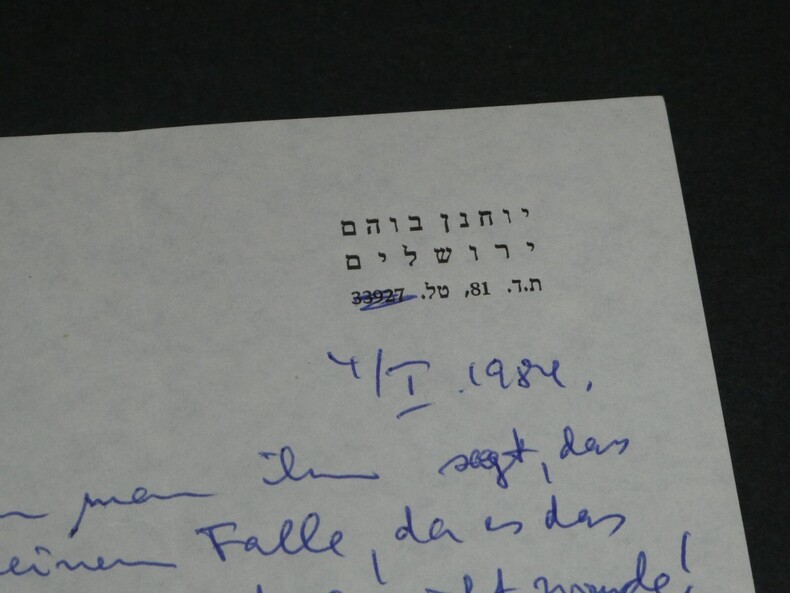 יוחנן בוהם
ירושלים
ת.ד. 81, טל. 33927
4/I 1984.
man ihm sagt, das
einem Falle, da es das
wurde!